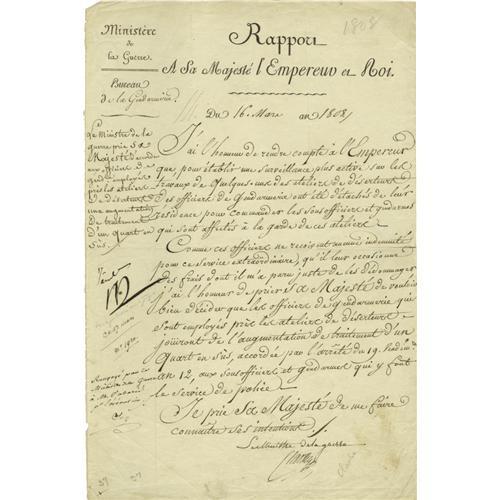 Ministère
de
la Guerre.
Bureau
de la Gendarmerie.
1808
Rapport
A Sa Majesté l'Empereur et Roi.
Du 16. Mars an 1808.
Le Ministre de la
guerre prie Sa
Majesté d'accorder
aux officiers de
gendarmerie employés
près les ateliers
de déserteurs
une augmentation
de traitement
d'un quart en
sus.
J'ai l'honneur de rendre compte à l'Empereur
que pour établir une surveillance plus active sur les
travaux de quelques-uns des ateliers de déserteurs
des officiers de Gendarmerie ont été détachés de leur
résidence pour commander les sous officiers et gendarmes
qui sont affectés à la garde de ces ateliers.
Comme ces officiers ne reçoivent aucune indemnité
pour ce service extraordinaire, qu'il leur occasionne
des frais dont il m'a paru juste de les dédommager
j'ai l'honneur de prier Sa Majesté de vouloir
bien décider que les officiers de gendarmerie qui
sont employés près les ateliers de déserteurs
jouiront de l'augmentation de traitement d'un
quart en sus, accordée par l'arrêté du 19.
an 12, aux sous officiers et gendarmes qui y font
le service de police.
Je prie Sa Majesté de me faire
connaître ses intentions.
Le Ministre de la guerre
Clarke
27 mars
Renvoyé par le
Ministre de la Guerre
27
27